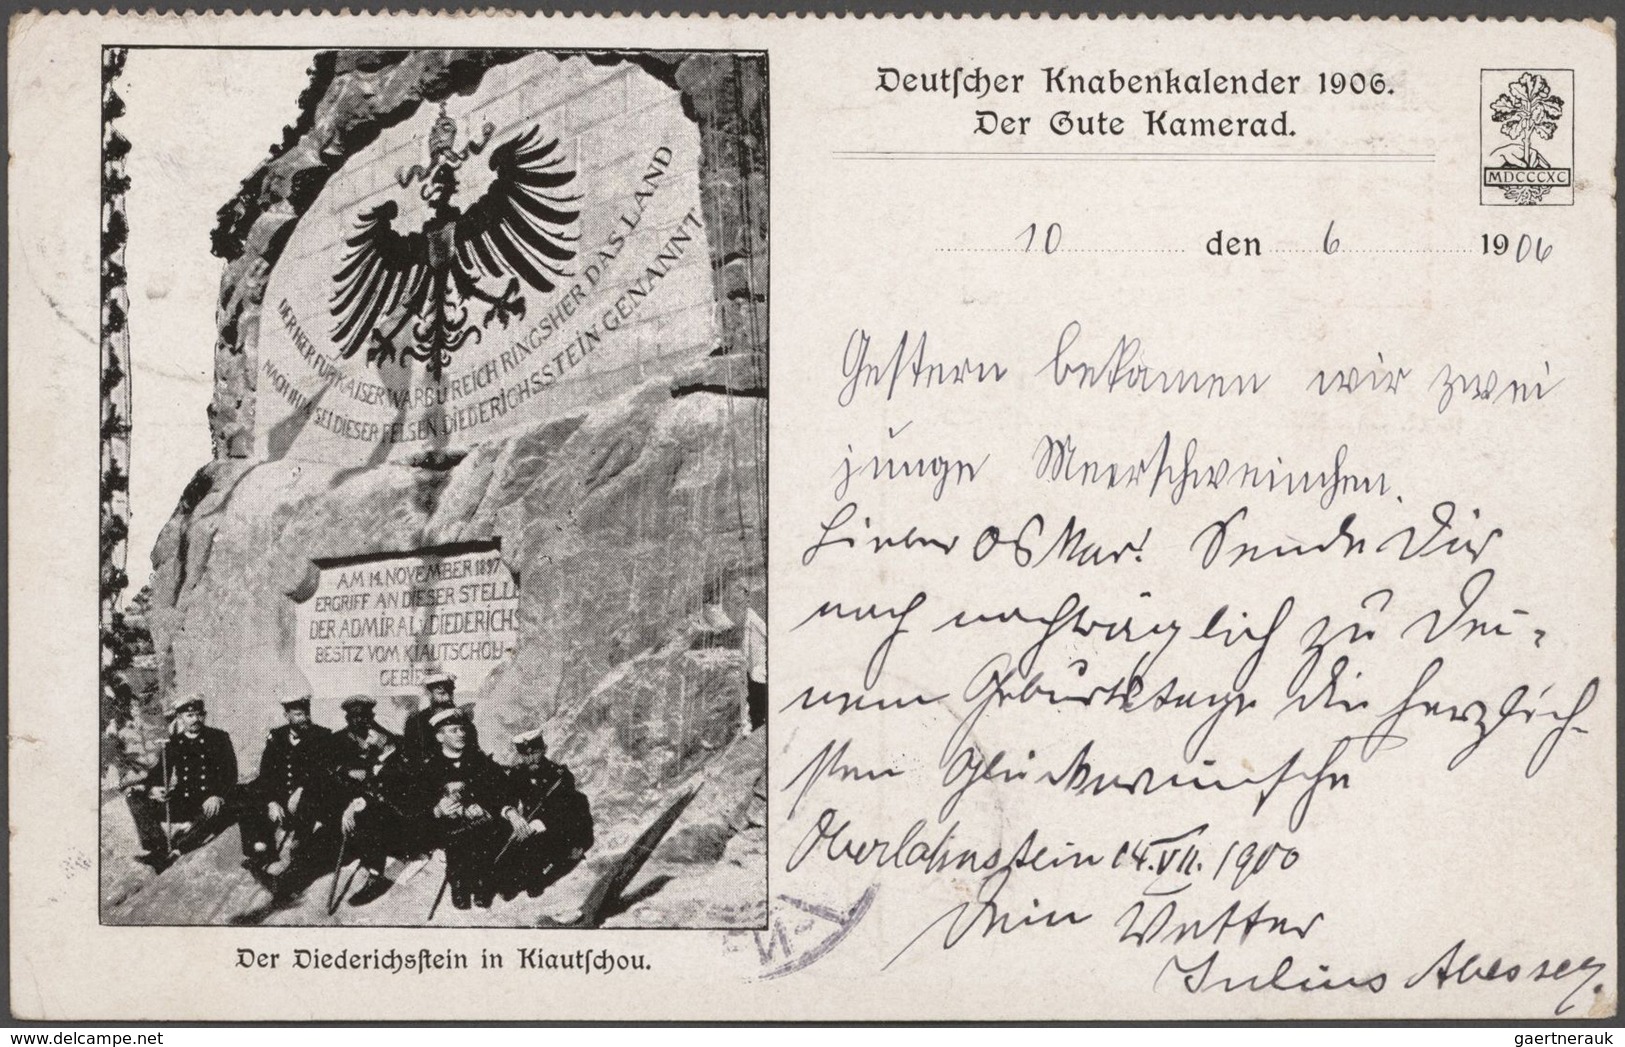 Deutscher Knabenkalender 1906.
Der Gute Kamerad.
MDCCCXC
10 den 6 1906
Gestern bekamen wir zwei
junge Meerschweinchen.
Lieber Oskar! Sende Dir
noch nachträglich zu Dei-
nem Geburtstage die herzlich-
sten Glückwünsche
Oberlahnstein 14.VII.1900
Dein Vetter
Julius
DER HIER FÜR KAISER WARB U REICH RINGSHER DAS LAND
NACH IHM SEI DIESER FELSEN DIEDERICHSSTEIN GENANNT
AM 14. NOVEMBER 1897
ERGRIFF AN DIESER STELLE
DER ADMIRAL V DIEDERICHS
BESITZ VOM KIAUTSCHOU-
GEBIET
Der Diederichsstein in Kiautschou.
www.delcampe.net
gaertnerauk